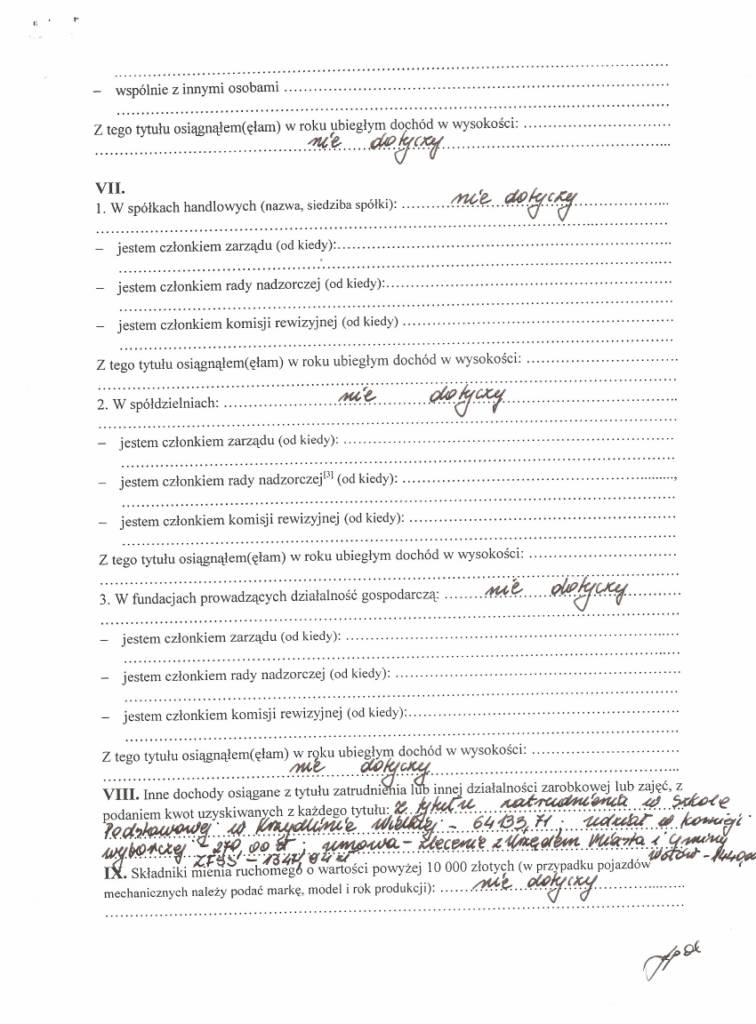 ................................................................................
– wspólnie z innymi osobami ................................................................................
................................................................................
Z tego tytułu osiągnąłem(ęłam) w roku ubiegłym dochód w wysokości: ..............................
.............................. nie dotyczy ..............................
VII.
1. W spółkach handlowych (nazwa, siedziba spółki): .......... nie dotyczy ....................
................................................................................
– jestem członkiem zarządu (od kiedy):............................................................
................................................................................
– jestem członkiem rady nadzorczej (od kiedy):..................................................
................................................................................
– jestem członkiem komisji rewizyjnej (od kiedy) ..................................................
................................................................................
Z tego tytułu osiągnąłem(ęłam) w roku ubiegłym dochód w wysokości: ..............................
................................................................................
2. W spółdzielniach: .................... nie dotyczy ..............................
................................................................................
– jestem członkiem zarządu (od kiedy): ............................................................
................................................................................
– jestem członkiem rady nadzorczej[3] (od kiedy): ..................................................,
................................................................................
– jestem członkiem komisji rewizyjnej (od kiedy): ..................................................
................................................................................
Z tego tytułu osiągnąłem(ęłam) w roku ubiegłym dochód w wysokości: ..............................
................................................................................
3. W fundacjach prowadzących działalność gospodarczą: ........ nie dotyczy ..........
................................................................................
– jestem członkiem zarządu (od kiedy): ............................................................
................................................................................
– jestem członkiem rady nadzorczej (od kiedy): ..................................................
................................................................................
– jestem członkiem komisji rewizyjnej (od kiedy):..................................................
................................................................................
Z tego tytułu osiągnąłem(ęłam) w roku ubiegłym dochód w wysokości: ..............................
.............................. nie dotyczy ..............................
VIII. Inne dochody osiągane z tytułu zatrudnienia lub innej działalności zarobkowej lub zajęć, z
podaniem kwot uzyskiwanych z każdego tytułu: z tytułu zatrudnienia w Szkole
Podstawowej w Krzydlinie Wielkiej – 64133,71. udział w komisji
wyborczej – 270,00 zł; umowa-zlecenie z Urzędem Miasta i Gminy
ZFŚS – 1347,84 zł Wołów –
IX. Składniki mienia ruchomego o wartości powyżej 10 000 złotych (w przypadku pojazdów
mechanicznych należy podać markę, model i rok produkcji): ........ nie dotyczy ..........
................................................................................